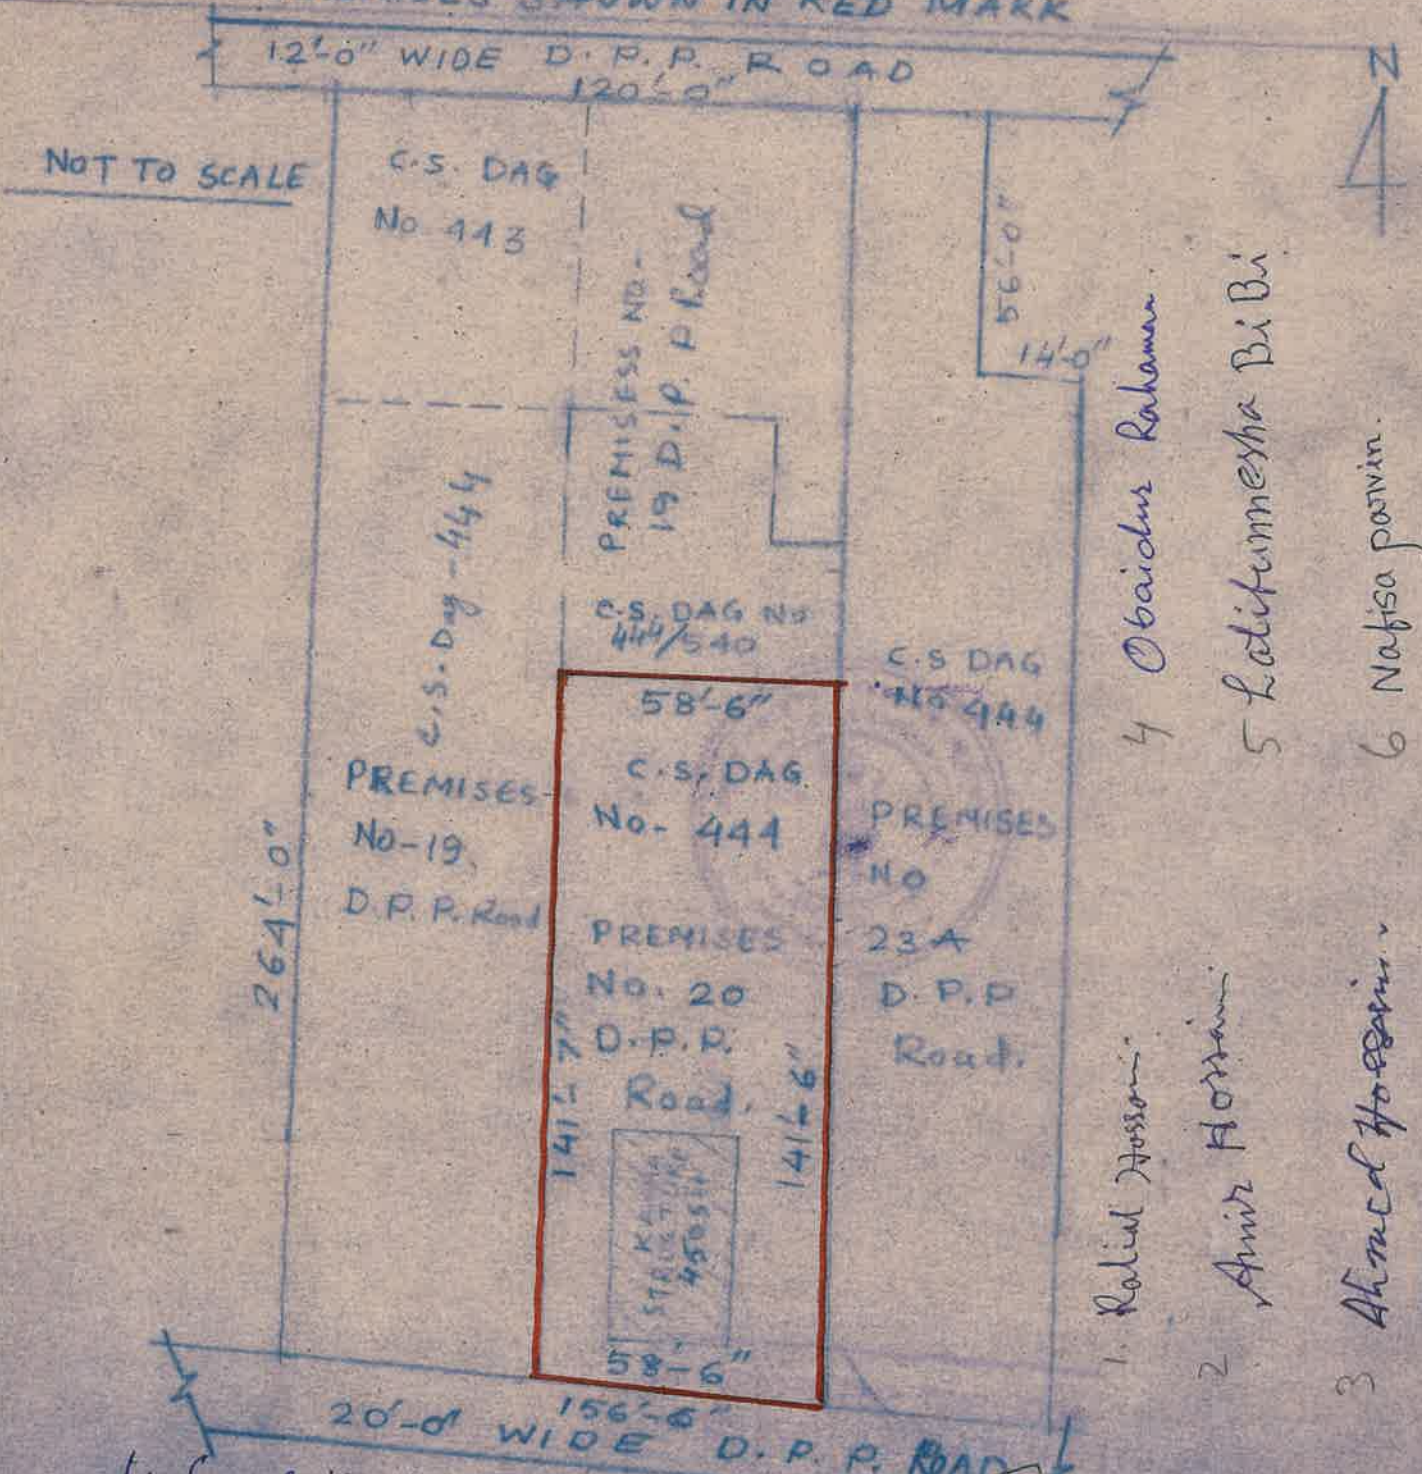 SHOWN IN RED MARK
12'-0" WIDE D.P.P. ROAD
120'-0"
N
NOT TO SCALE
C.S. DAG
No 443
PREMISESS NO-
19 D.P. P Road
56'-0"
14'-0"
C.S. Dag - 444
C.S. DAG No
444/540
C.S DAG
No 444
58'-6"
C.S. DAG
No- 444
PREMISES-
No-19.
D.P.P. Road
264'-0"
PREMISES
No. 20
D.P.P.
Road.
PREMISES
NO
23A
D.P.P
Road.
141'-7"
141'-6"
STRUCTURE
450
58'-6"
156'-6"
20'-0" WIDE D.P.P. ROAD
1. Hossain.
2 Amir Hossain.
3 Ahmed Hossain.
4 Obaidur Rahaman.
5 Latifunnesha Bi Bi
6 Nafisa parvin.